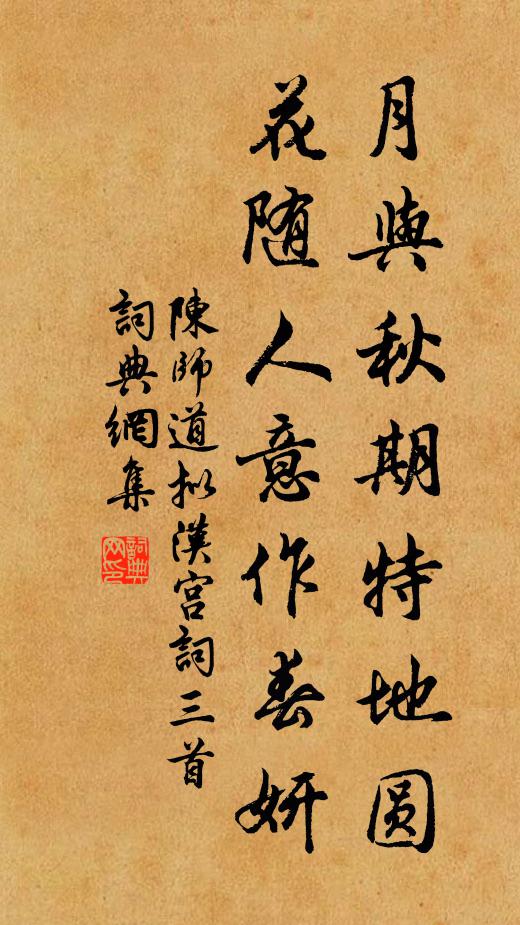 月與秋期特地圆
花随人意作春妍
陳師道拟漢宫詞三首
詞典網集
詞典网印